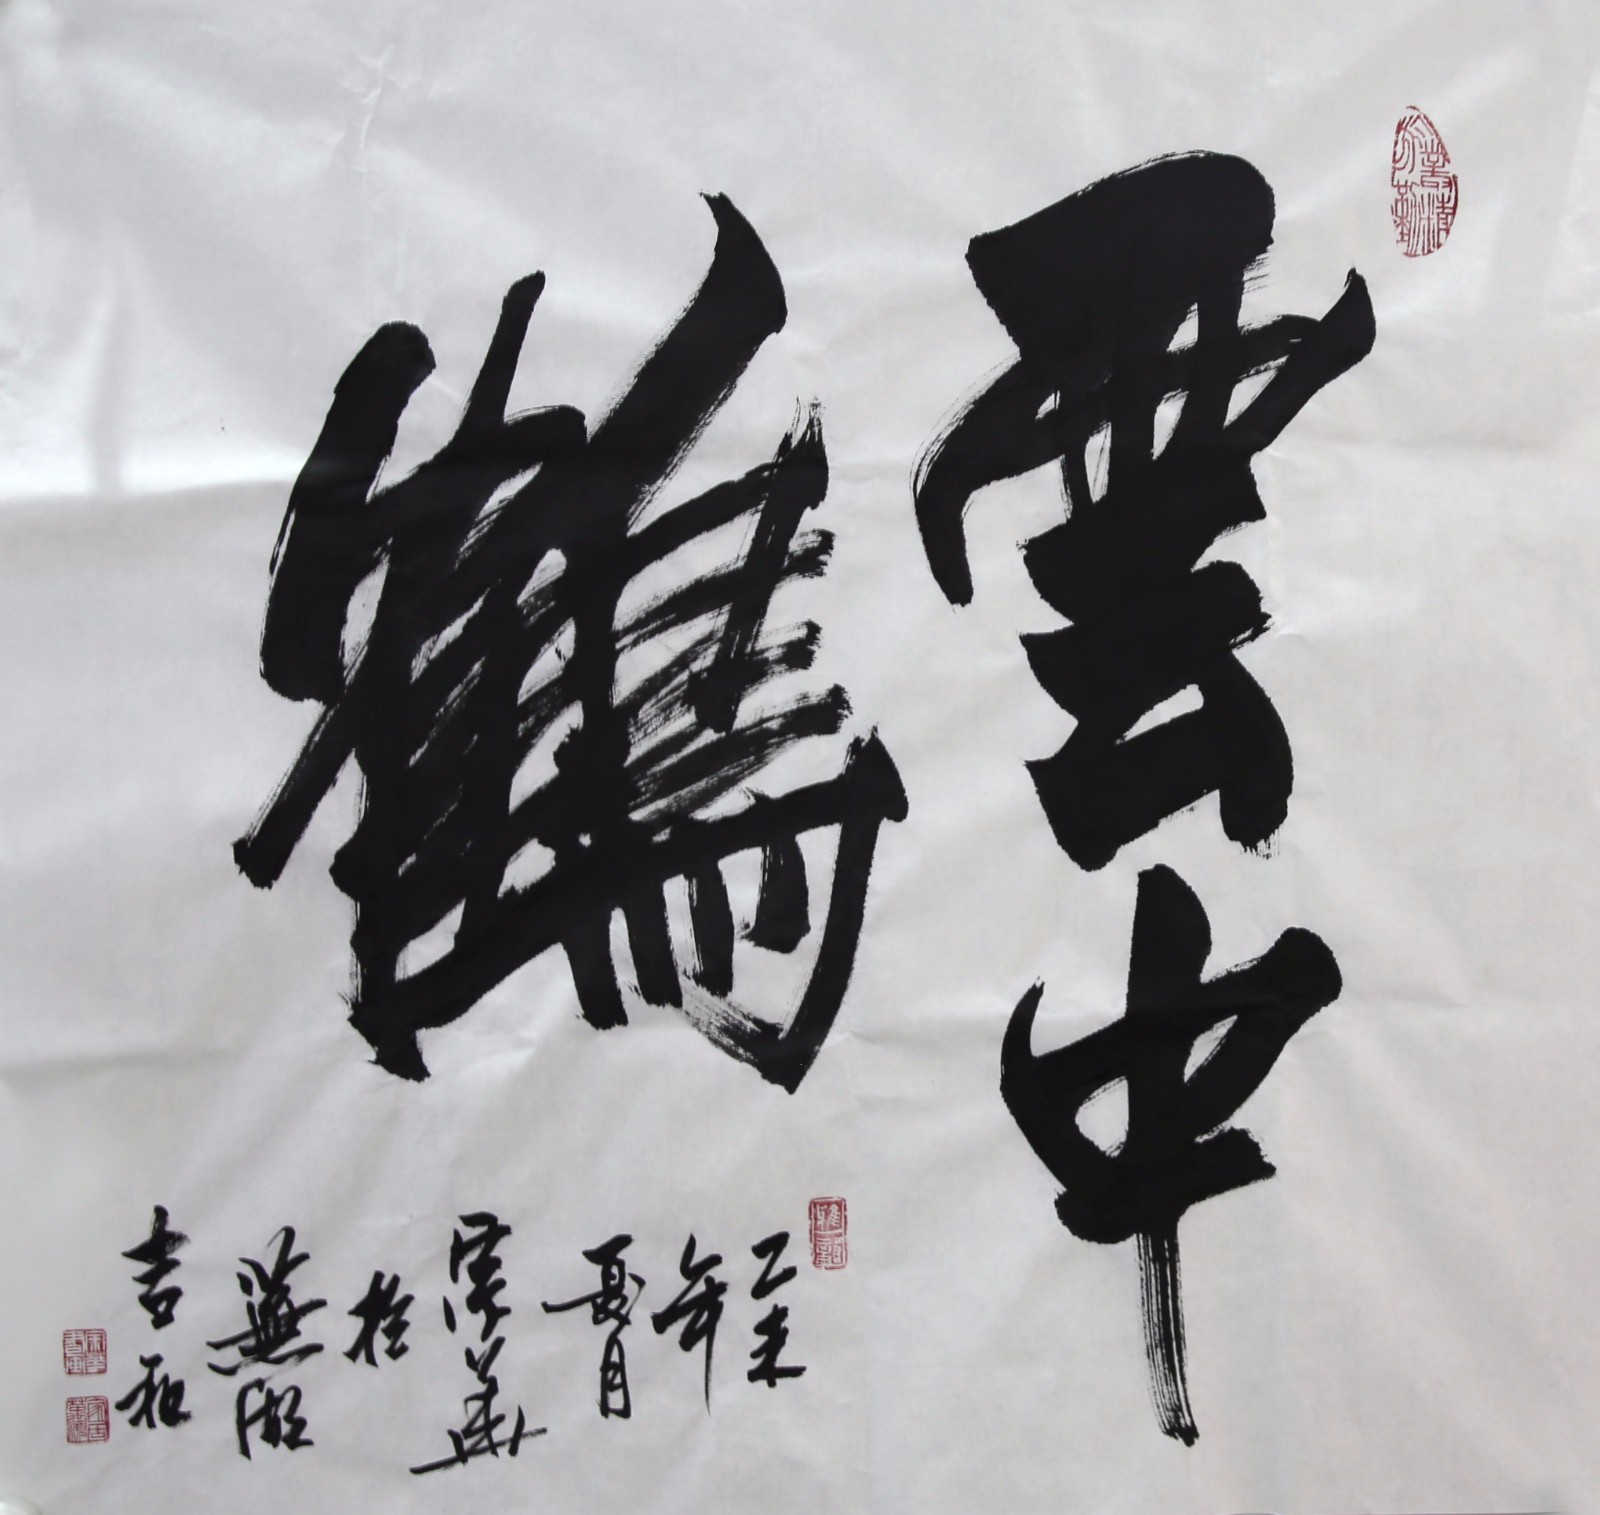 雲中
鶴
乙未
年
夏月
宗華
於
蕪湖
吉和